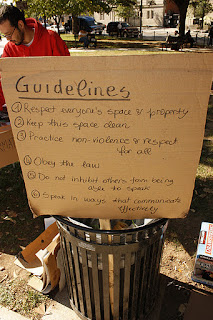 Guidelines
① Respect everyone's space & property
② Keep this space clean
③ Practice non-violence & respect
for all
④ Obey the law
⑤ Do not inhibit others from being
able to speak
⑥ Speak in ways that communicate
effectively